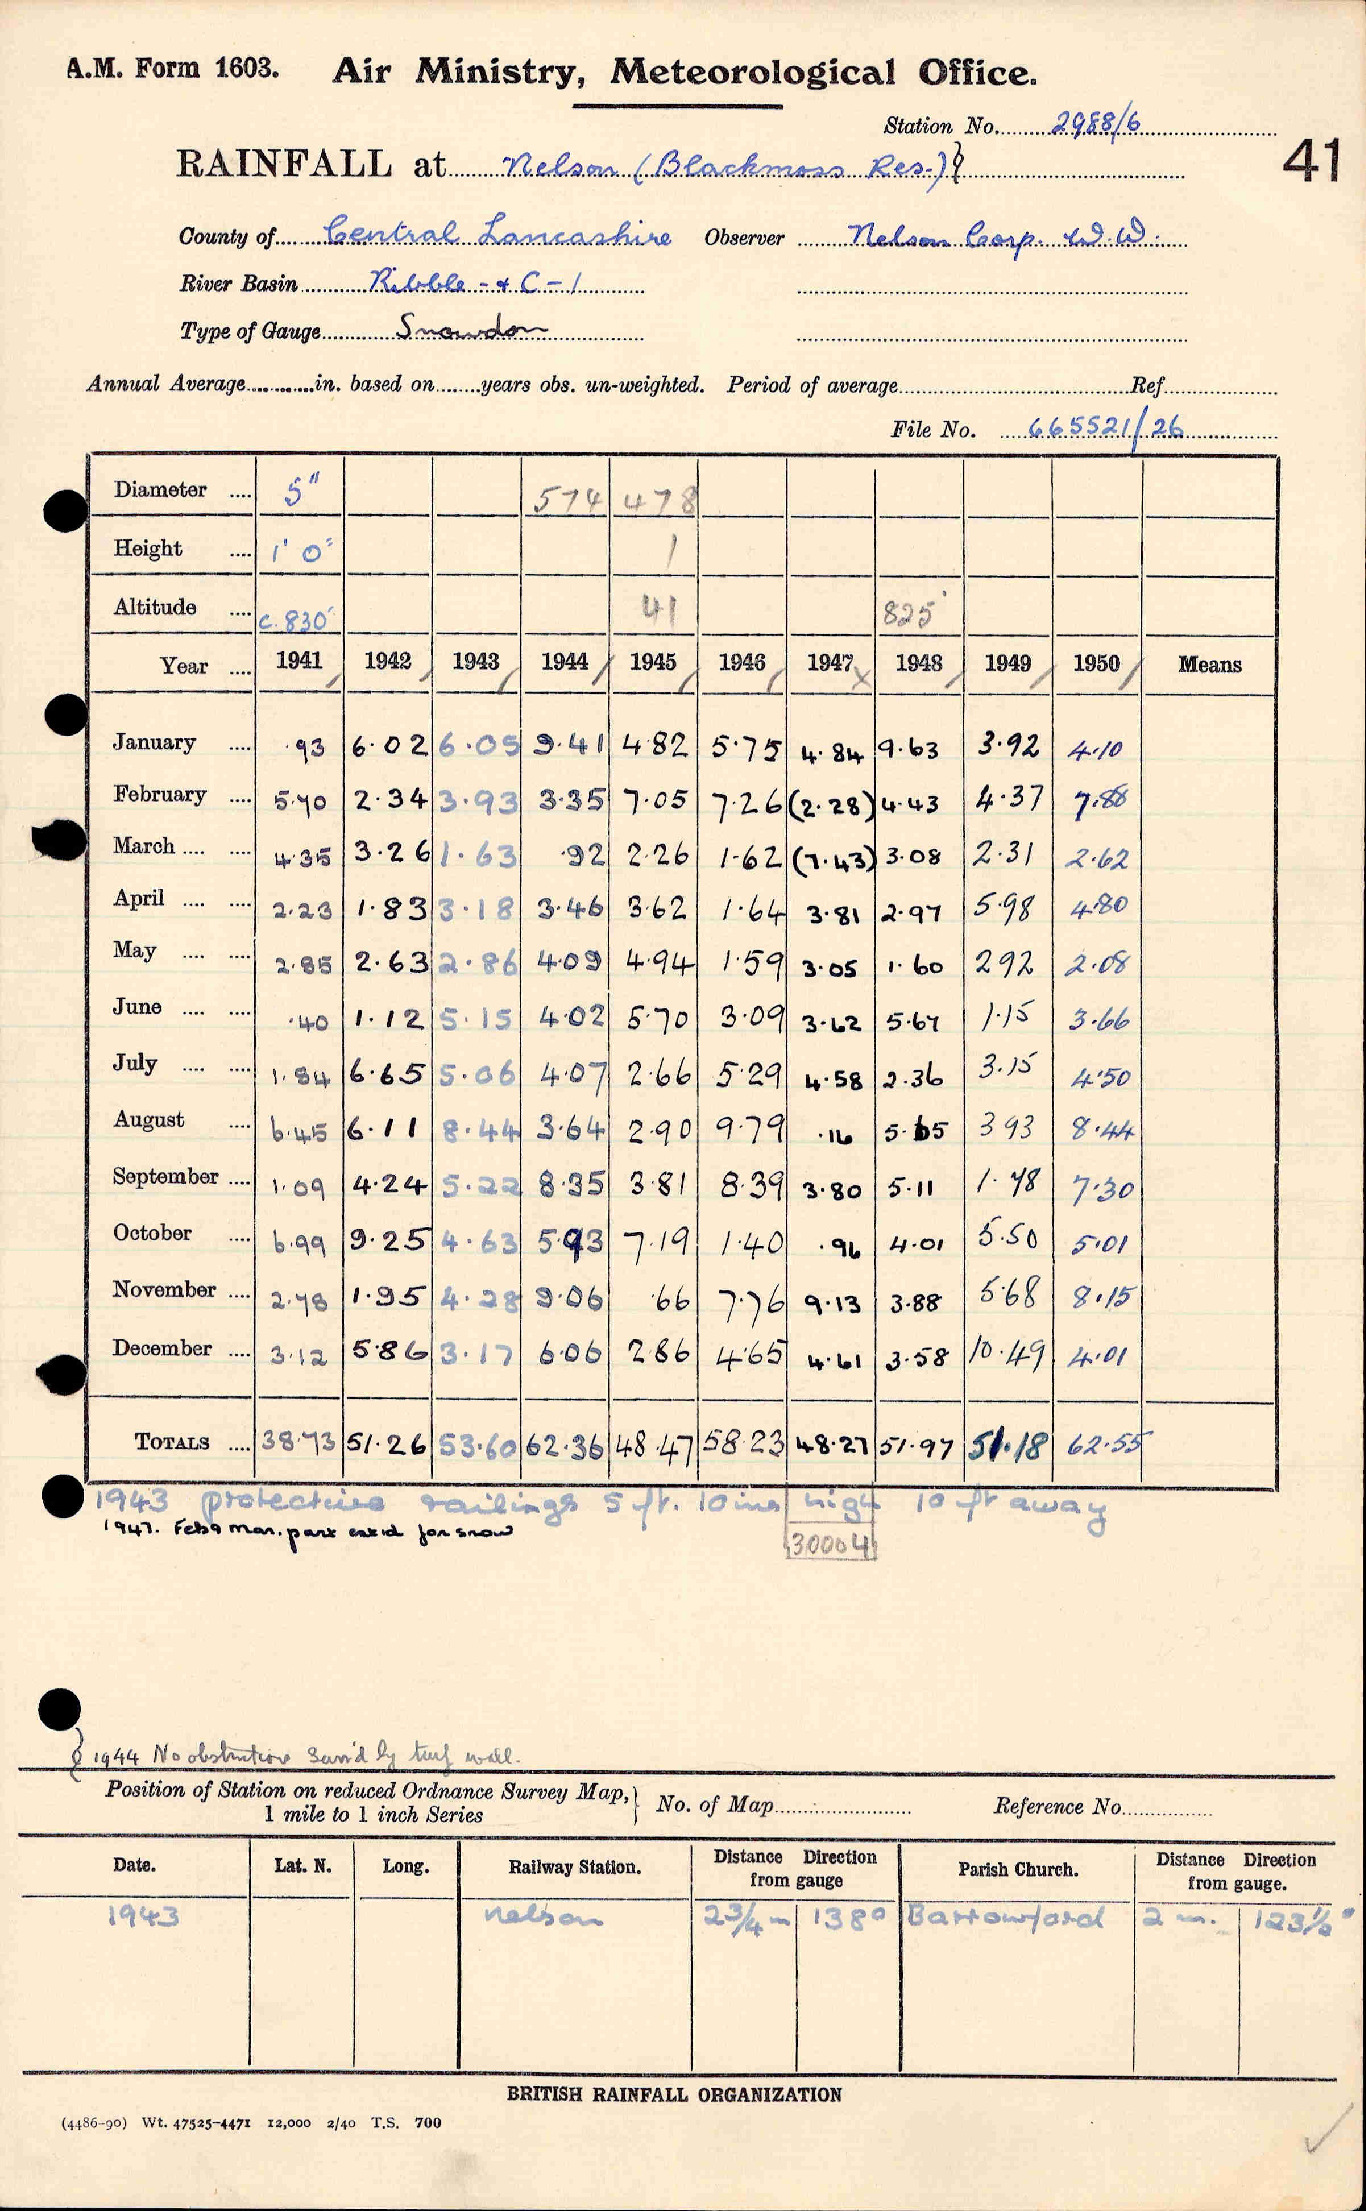 A.M. Form 1603. Air Ministry, Meteorological Office.
Station No. 2988/6
41
RAINFALL at Nelson (Blackmoss Res.)}
County of Central Lancashire Observer Nelson Corp. W.W.
River Basin Ribble - + C - 1
Type of Gauge Snowdon
Annual Average in. based on years obs. un-weighted. Period of average Ref.
File No. 665521/26
Diameter 5" 574 478
Height 1' 0" 1
Altitude c. 830' 41 825'
Year 1941 1942 1943 1944 1945 1946 1947 1948 1949 1950 Means
January ·93 6·02 6·05 9·41 4·82 5·75 4·84 9·63 3·92 4·10
February 5·70 2·34 3·93 3·35 7·05 7·26 (2·28) 4·43 4·37 7·88
March 4·35 3·26 1·63 ·92 2·26 1·62 (7·43) 3·08 2·31 2·62
April 2·23 1·83 3·18 3·46 3·62 1·64 3·81 2·97 5·98 4·80
May 2·85 2·63 2·86 4·09 4·94 1·59 3·05 1·60 2 92 2·08
June ·40 1·12 5·15 4·02 5·70 3·09 3·62 5·67 1·15 3·66
July 1·84 6·65 5·06 4·07 2·66 5·29 4·58 2·36 3·15 4·50
August 6·45 6·11 8·44 3·64 2·90 9·79 ·16 5·65 3 93 8·44
September 1·09 4·24 5·22 8·35 3·81 8·39 3·80 5·11 1·78 7·30
October 6·99 9·25 4·63 5·93 7·19 1·40 ·96 4·01 5·50 5·01
November 2·78 1·95 4·28 9·06 ·66 7·76 9·13 3·88 5·68 8·15
December 3·12 5·86 3·17 6·06 2·86 4·65 4·61 3·58 10·49 4·01
TOTALS 38·73 51·26 53·60 62·36 48·47 58·23 48·27 51·97 51·18 62·55
1943 protective railings 5 ft. 10 ins high 10 ft away
1947. Feb & Mar. part est'd for snow
30004
1944 No obstructions Surr'd by turf wall.
Position of Station on reduced Ordnance Survey Map,} No. of Map Reference No.
1 mile to 1 inch Series
Date. Lat. N. Long. Railway Station. Distance from gauge Direction Parish Church. Distance from gauge. Direction
1943 Nelson 2¾ m 138° Barrowford 2 m. 123½°
BRITISH RAINFALL ORGANIZATION
(4486-90) Wt. 47525-4471 12,000 2/40 T.S. 700